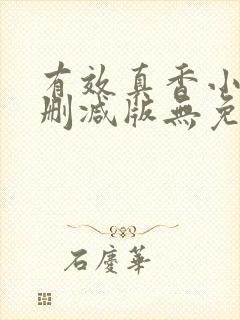 有效真香小
删减版無免
石慶華